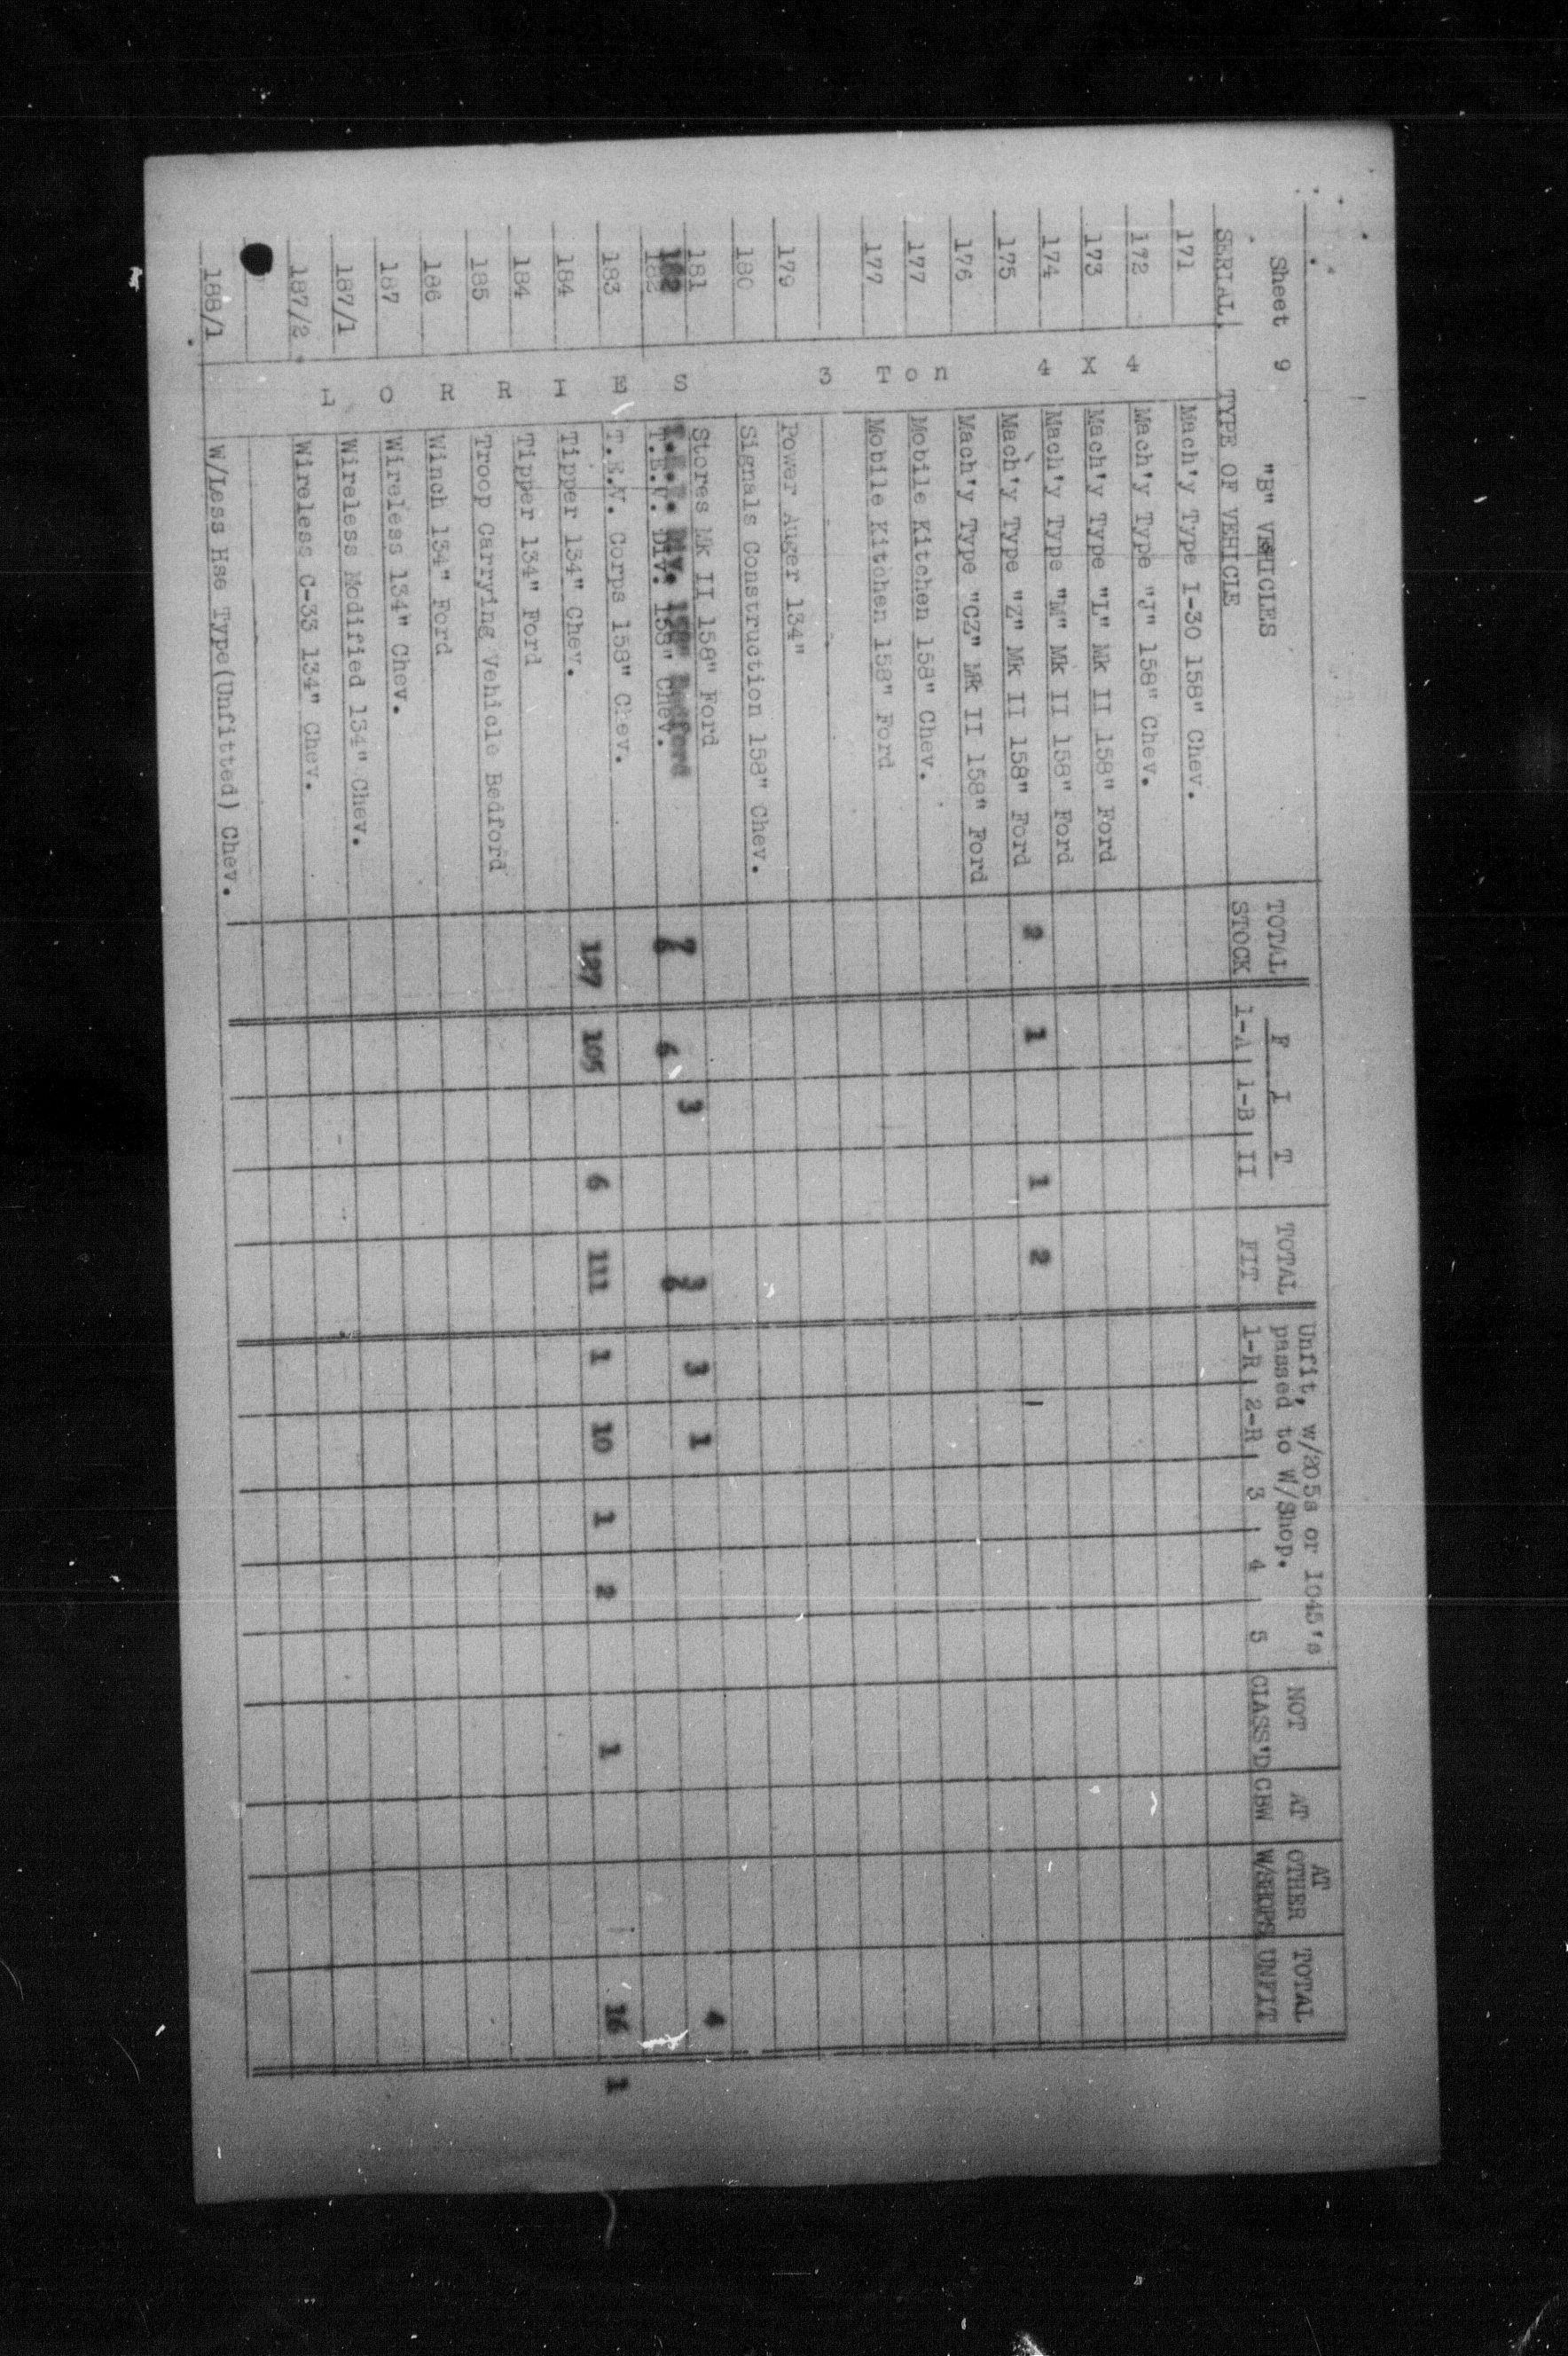 Sheet 9 "B" VEHICLES
SERIAL. TYPE OF VEHICLE TOTAL STOCK F I T 1-A 1-B II TOTAL FIT Unfit, w/205s or 1045's passed to W/Shop. 1-R 2-R 3 4 5 NOT CLASS'D AT CBW AT OTHER W/SHOPS TOTAL UNFIT
3 Ton 4 X 4
L O R R I E S
171 Mach'y Type I-30 158" Chev.
172 Mach'y Type "J" 158" Chev.
173 Mach'y Type "L" Mk II 158" Ford
174 Mach'y Type "M" Mk II 158" Ford
175 Mach'y Type "Z" Mk II 158" Ford 2 1 1 2
176 Mach'y Type "CZ" Mk II 158" Ford
177 Mobile Kitchen 158" Chev.
177 Mobile Kitchen 158" Ford
179 Power Auger 134"
180 Signals Construction 158" Chev.
181 Stores Mk II 158" Ford 7 3 3 3 1 4
182 T.E.V. Div. 158" Chev. 6 6 6
183 T.E.V. Corps 158" Chev.
184 Tipper 134" Chev. 127 105 6 111 1 10 1 2 1 16 1
184 Tipper 134" Ford
185 Troop Carrying Vehicle Bedford
186 Winch 134" Ford
187 Wireless 134" Chev.
187/1 Wireless Modified 134" Chev.
187/2 Wireless C-33 134" Chev.
188/1 W/Less Hse Type(Unfitted) Chev.